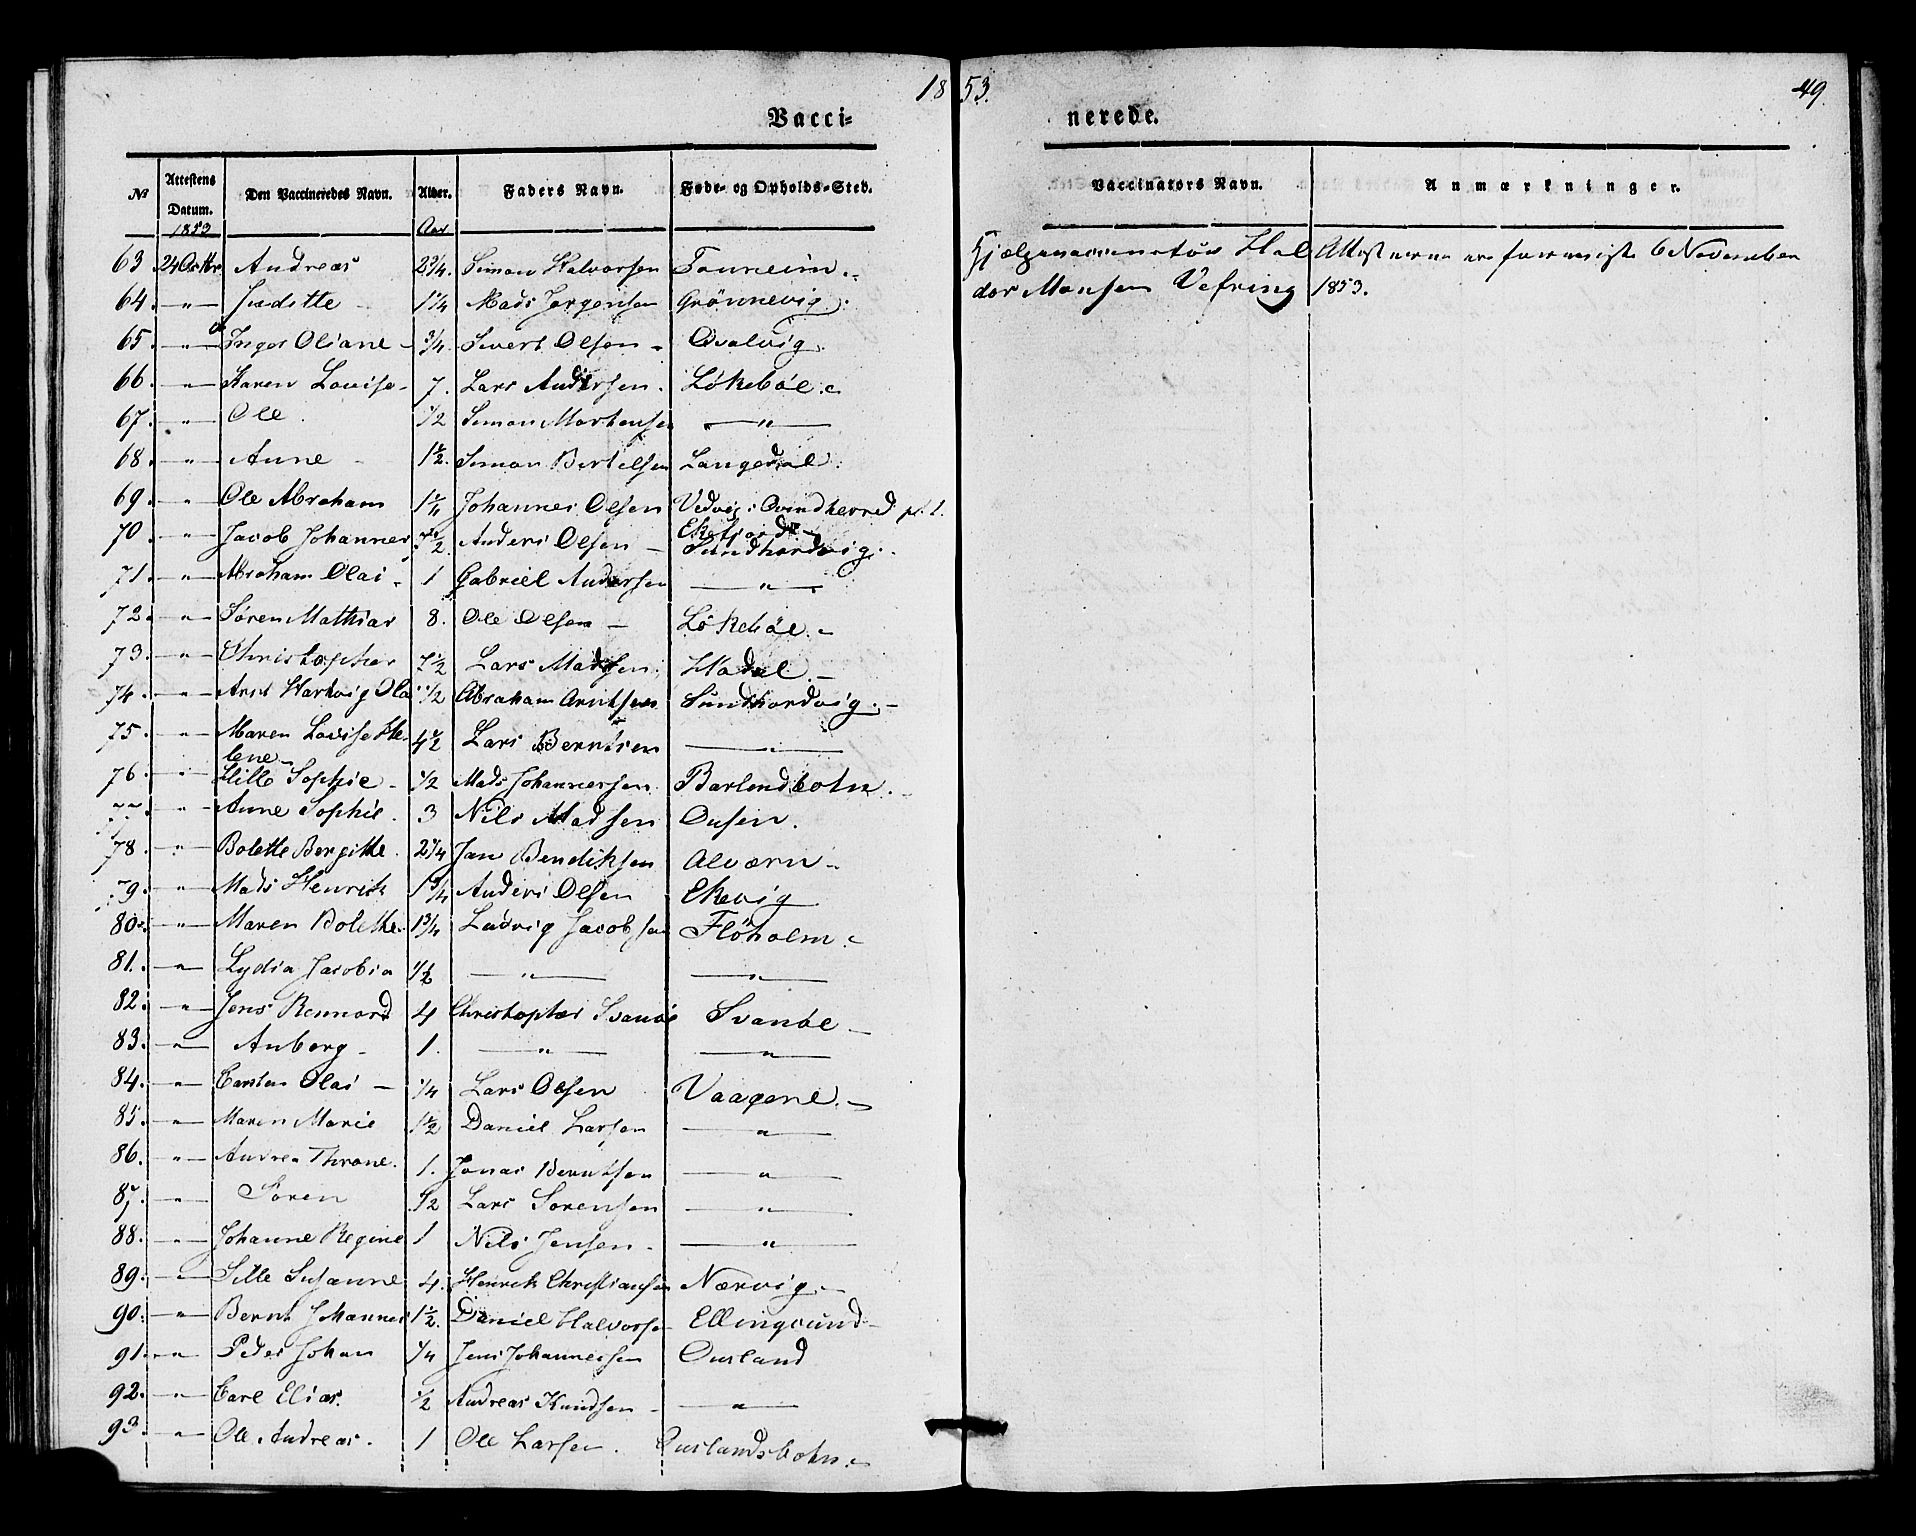 18 53.
49.
Vacci- nerede.
№ Attestens Datum. Den Vaccineredes Navn. Alder. Faders Navn. Føde- og Opholds-Sted. Vaccinators Navn. Anmærkninger.
1853 Aar
63. 24 Octbr Andreas 2 3/4. Simon Halvorsen Tonneim. Hjælpevaccinatör Hal Attesterne ere forevviste 6 November
64. " 1 1/4 Mads Jørgensen Grönnevig. dor Monsen Vefring 1853.
65. " Inger Oliane 3/4. Sivert Olsen Qvalvig.
66. " Karen Lovise 7. Lars Andersen. Lökeböe.
67. " Ole. 1/2 Simon Mortensen "
68. " Anne 1 1/2. Simon Bertelsen Langedal.
69. " Ole Abraham 1 1/4 Johannes Olsen Vedvig i Qvindherred p. t.
Ekefjord
70. " Jacob Johannes 1/2. Anders Olsen Sundhordvig.
71. " Abraham Olai 1 Gabriel Andersen "
72. " Sören Mathias 8. Ole Olsen Lökeböe.
73. " Christopher 7 1/2 Lars Madsen. Hadal.
74. " Arnt Hartvig Ola 1/2 Abraham Arntsen Sundhordvig.
75. " Maren Lovise He- 4 1/2 Lars Berntsen "
lene
76. " Sille Sophie 1/2 Mads Johannessen Barlendbotn.
77. " Anne Sophie. 3 Nils Madsen Ousen.
78. " Bolette Bergitte. 2 1/4 Jan Bendiksen Alværn
79. " Mads Henrik 1 3/4 Anders Olsen Ekevig
80. " Maren Bolette. 1 3/4 Ludvig Jacobsen Flöholm.
81. " Lydia Jacobia 1/2 " "
82. " Jens Rennord 4 Christopher Svanöe Svanöe
83. " Anborg 1. " "
84. " Carsten Olai 1/4 Lars Olsen Vaagene.
85. " Maren Marie 1 1/2 Daniel Larsen "
86. " Andrea Throne. 1. Jonas Berntsen "
87. " Sören 1/2 Lars Sorensen "
88. " Johanne Regine 1 Nils Jensen. "
89. " Sille Susanne 4. Henrik Christiansen Nærvig.
90. " Bernt Johannes 1 1/2. Daniel Halvorse Ellingsund
91. " Peder Johan 1/4 Jens Johannessen Ousland
92. " Carl Elias. 1/2 Andreas Knudsen "
93. " Ole Andreas. 1 Ole Larsen. Ouslandsbotn.